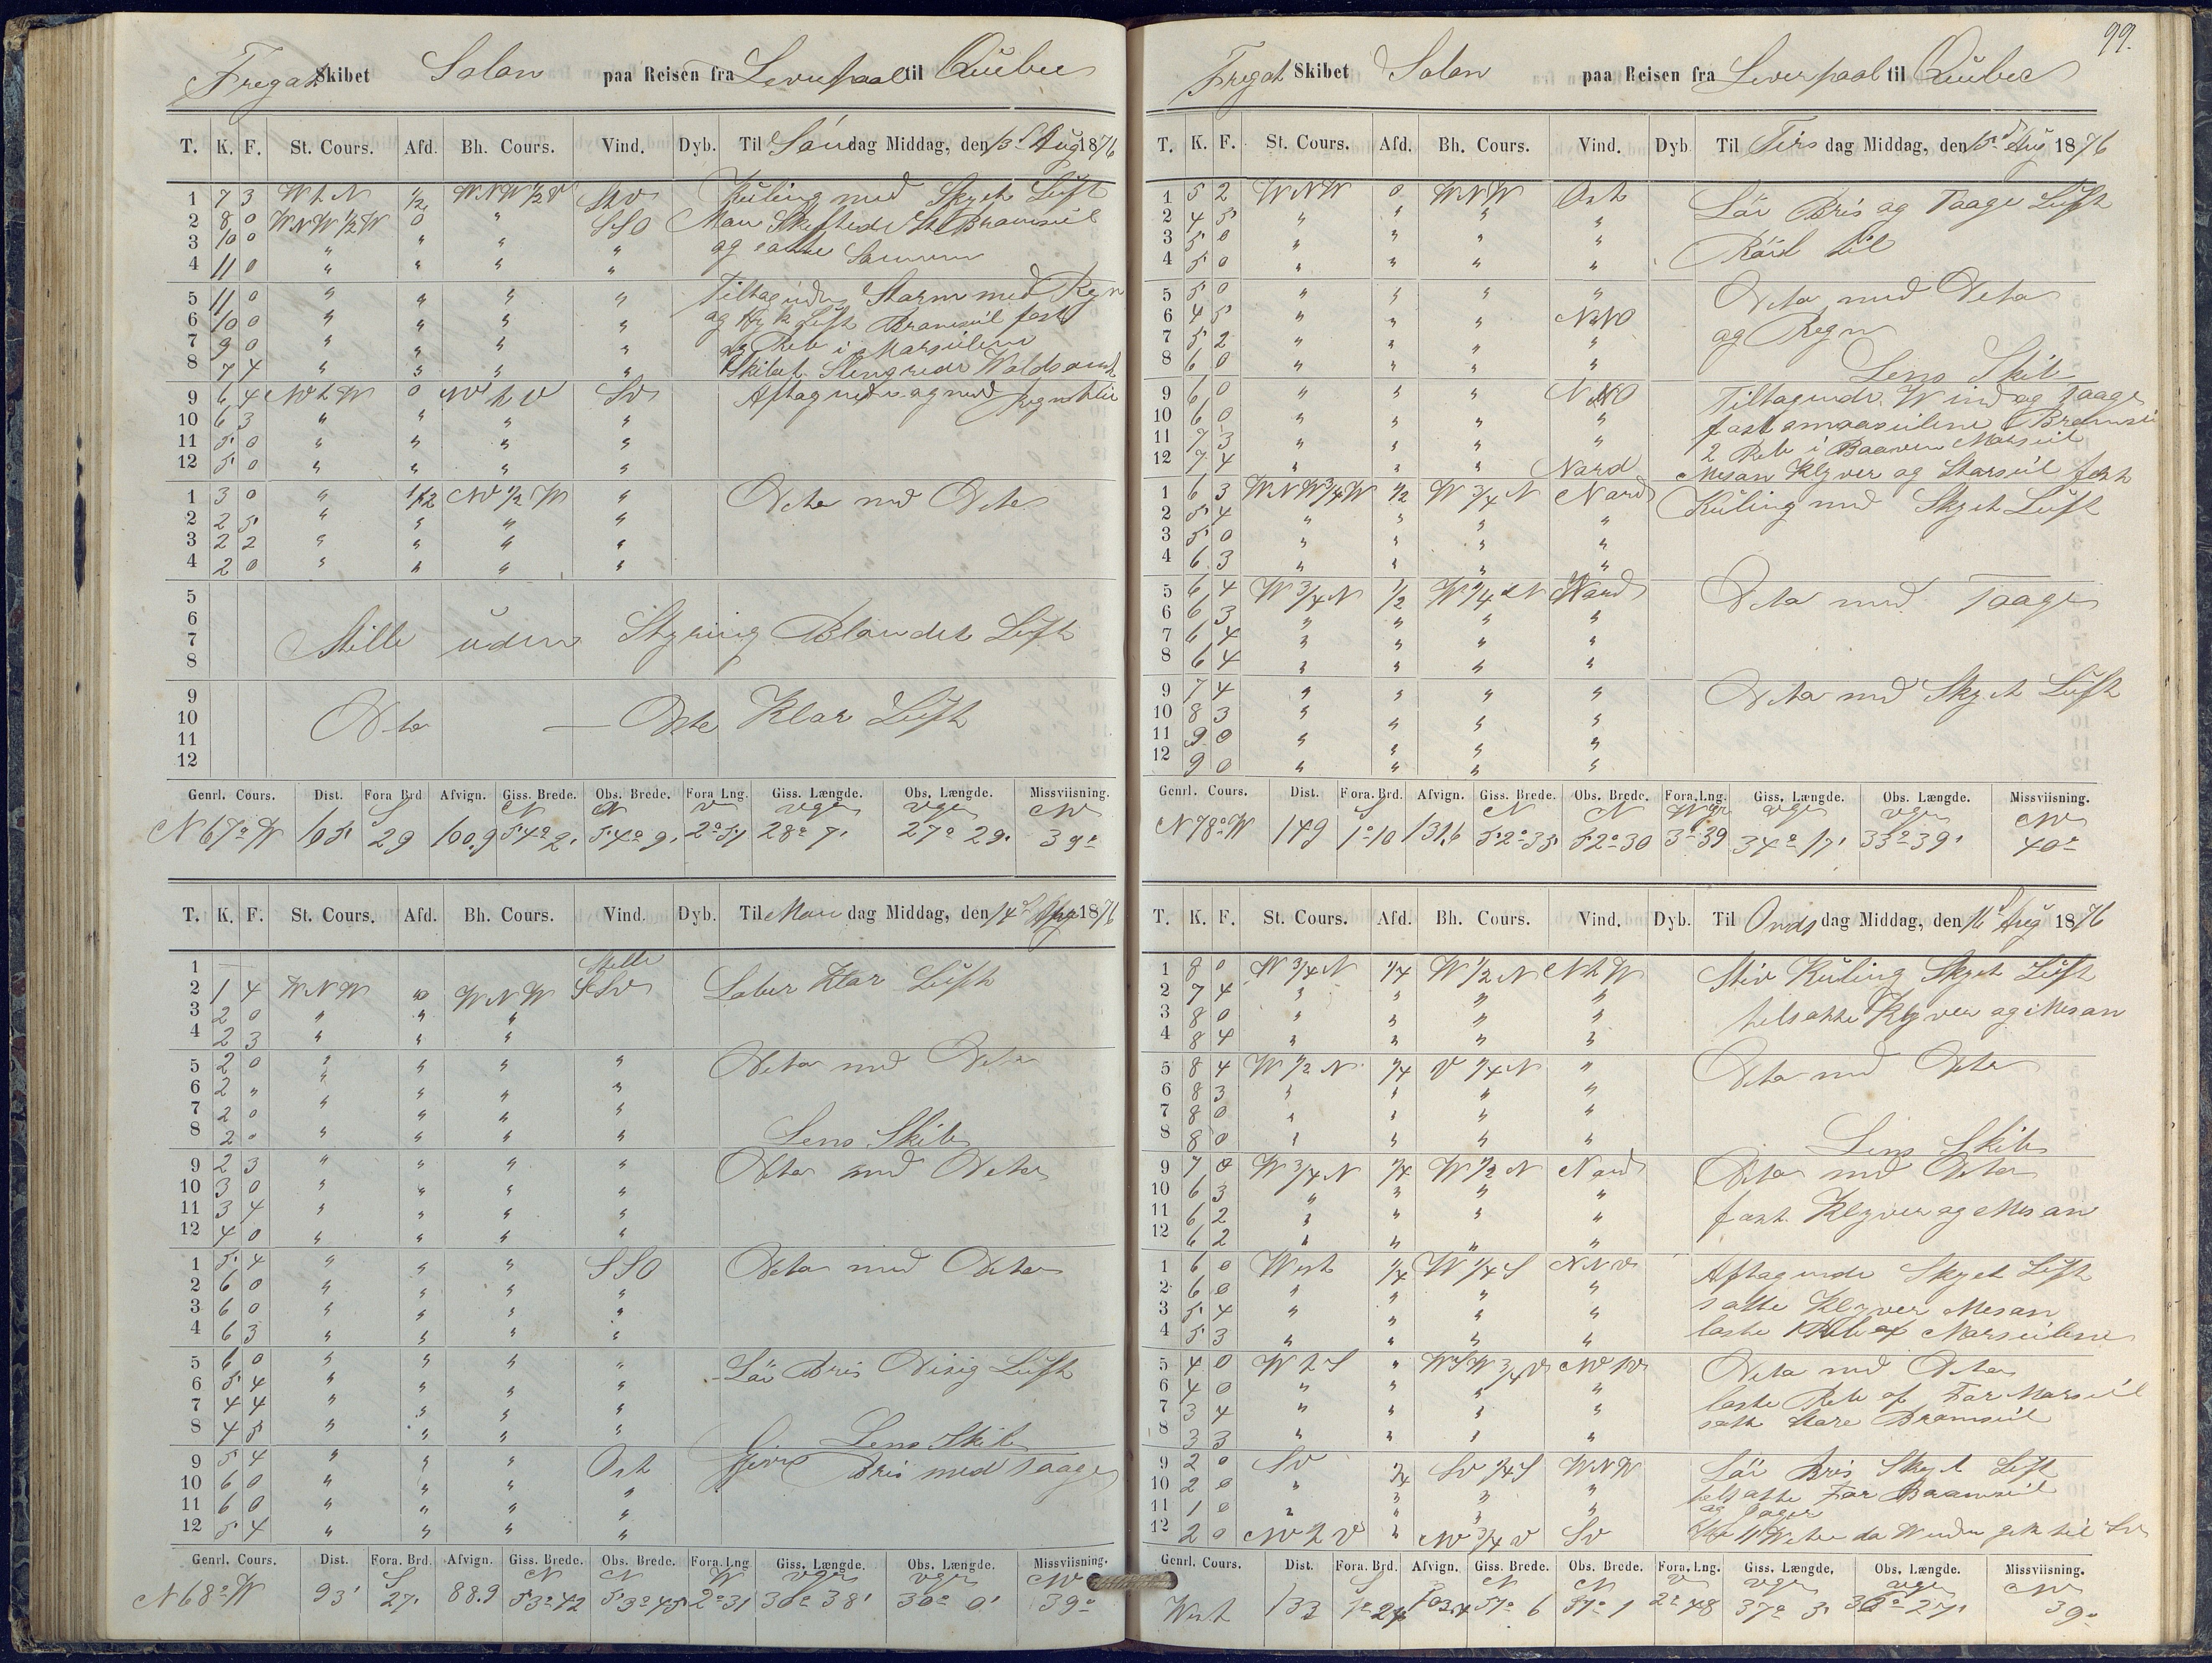 Fregat Skibet Solon paa Reisen fra Liverpool til Quebec
T. K. F. St. Cours. Afd. Bh. Cours. Vind. Dyb. Til Søndag Middag, den 13d Aug 1876
1 7 3 WtN 1/2 WNW 1/2 V
2 8 0 WNW 1/2 W 0 " SSO
3 10 0 " " " "
4 11 0 " " " "
Kuling med Skyet Luft
Man Skiftede St Bramseil
og satte Samme
5 11 0 " " " "
6 10 0 " " " "
7 9 0 " " " "
8 7 4 " " " "
Tiltagende Storm med Regn
og Tyk Luft Bramseil fast
Reb i Marseilene
Skibet Slengrede Voldsomt
9 6 4 0 SV
10 6 3 " " " "
11 5 0 " " " "
12 5 0 " " " "
Aftagende og med
1 3 0 " 1 1/2 NV 1/2 W "
2 2 5 " " " "
3 2 2 " " " "
4 2 0 " " " "
Deto med Deto
5
6
7
8
Stille uden Styring Blandet Luft
9
10
11
12
Deto — Deto Klar Luft
Genrl. Cours. Dist. Fora Brd Afvign. Giss. Brede. Obs. Brede. Fora Lng. Giss. Længde. Obs. Længde. Missviisning.
S N N V vgr vgr NV
N 67° W 105 29 100,9 54° 2' 54° 9' 2° 51 28° 7' 27° 29' 39°
T. K. F. St. Cours. Afd. Bh. Cours. Vind. Dyb. Til Mandag Middag, den 14d Aug 1876
1 Stille
2 1 4 WNW 0 WNW SSV
3 2 0 " " "
4 2 3 " " "
Laber Klar Luft
5 2 0 " " " "
6 2 " " " " "
7 2 0 " " " "
8 2 0 " " " "
Deto med Deto
Lens Skib
9 2 3 " " " "
10 3 0 " " " "
11 3 4 " " " "
12 4 0 " " " "
Deto med Deto
1 5 4 " " " SSO
2 6 0 " " " "
3 6 0 " " " "
4 6 3 " " " "
Deto med Deto
5 6 0 " " " "
6 5 4 " " " "
7 4 4 " " " "
8 4 5 " " " "
Lör Bris Disig Luft
Lens Skib
9 5 4 " " " Ost
10 6 0 " " " "
11 6 0 " " " "
12 5 4 " " " "
Jevn Bris med Taage
Genrl. Cours. Dist. Fora. Brd. Afvign. Giss. Brede. Obs. Brede. Fora. Lng Giss. Længde. Obs. Længde. Missviisning.
S N N W vgr vgr NV
N 68° W 93' 27' 88.9 53° 42 53° 45 2° 31 30° 38' 30° 0' 39°
99.
Fregat Skibet Solon paa Reisen fra Liverpool til Quebec
T. K. F. St. Cours. Afd. Bh. Cours. Vind. Dyb Til Tirsdag Middag, den 15d Aug 1876
1 5 2 WNW 0 WNW Ost
2 4 5 " " " "
3 5 0 " " " "
4 5 0 " " " "
Lör Bris og Taage Luft
5 5 0 " " " "
6 4 5 " " " NNO
7 5 2 " " " "
8 6 0 " " " "
Deto med Deto
og Regn
Lens Skib
9 6 0 " " " NNO
10 6 0 " " " "
11 7 3 " " " "
12 7 4 " " " Nord
Tiltagende Wind og Taage
fast smaaseilene Bramsei
2 Reb i Marseil
Mesan Klyver og Storseil fast
1 6 3 WNW 3/4 W 1/2 W 3/4 N Nord
2 5 4 " " " "
3 5 0 " " " "
4 6 3 " " " "
Kuling med Skyet Luft
5 6 4 W 3/4 N 1/2 W 1/4 N Nord
6 6 3 " " " "
7 6 4 " " " "
8 6 4 " " " "
Deto med Taage
9 7 4 " " " "
10 8 3 " " " "
11 9 0 " " " "
12 9 0 " " " "
Deto med Skyet Luft
Genrl. Cours. Dist. Fora. Brd. Afvign. Giss. Brede. Obs. Brede. Fora. Lng. Giss. Længde. Obs. Længde. Missviisning.
S N N Wgr vgr vgr NV
N 78° W 149 1° 10 131,6 52° 35 52° 30 3° 39 34° 17' 33° 39' 40°
T. K. F. St. Cours. Afd. Bh. Cours. Vind. Dyb. Til Onsdag Middag, den 16d Aug 1876
1 8 0 W 3/4 N 1/4 W 1/2 N NtW
2 7 4 " " " "
3 8 0 " " " "
4 8 4 " " " "
Stiv Kuling Skyet Luft
tilsatte Klyver og Mesan
5 8 4 W 1/2 N 1/4 V 1/4 N "
6 8 3 " " " "
7 8 0 " " " "
8 8 0 " " " "
Deto med Deto
Lens Skib
9 7 0 W 3/4 N 1/4 W 1/2 N Nord
10 6 3 " " " "
11 6 2 " " " "
12 6 2 " " " "
Deto med Deto
fast Klyver og Mesan
1 6 0 West 1/4 W 1/4 S NNV
2 6 0 " " " "
3 5 4 " " " "
4 5 3 " " " "
Aftagende Skyet Luft
satte Klyver Mesan
loste 1 Reb af Marseilene
5 4 0 WtS " WSW 3/4 V
6 4 0 " " " "
7 3 4 " " " "
8 3 3 " " " "
Deto med Deto
loste Reb af For Marseil
satte Store Bramseil
9 2 0 SV 1/4 SV 1/4 S WNW
10 2 0 " " " "
11 1 0 " " " "
12 2 0 NVtV " NV 3/4 V SV
Lör Bris Skyet Luft
tilsatte For Bramseil
og Jager
da Winden gik til SV
Genrl. Cours. Dist. Fora. Brd. Afvign. Giss. Brede. Obs. Brede. Fora. Lng. Giss. Længde. Obs. Længde. Missviisning.
S N N V vgr vgr NV
West 133 1° 24 103,4 51° 6 51° 1 2° 48 37° 3' 36° 27' 39°